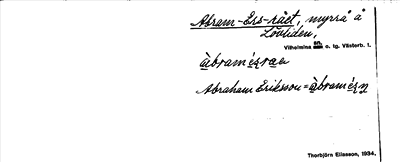 Abram-Ers-rået, myrrå å
Lövliden,
Vilhelmina sn. o. tg. Västerb. l.
àbramérsraa
Abraham Eriksson = àbramérsn
Thorbjörn Eliasson, 1934.